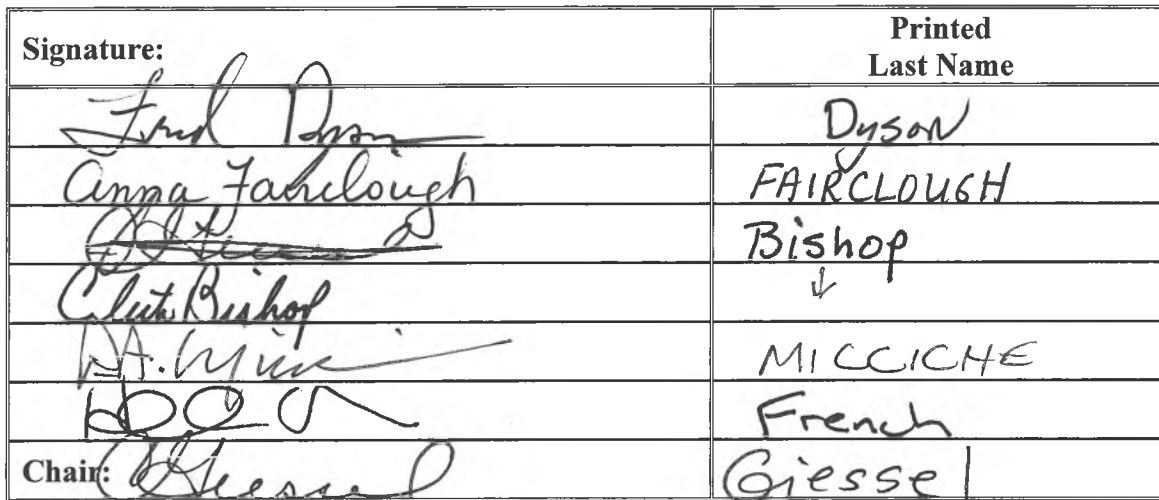 Signature: Printed
Last Name
Fred Dyson Dyson
Anna Fairclough FAIRCLOUGH
Bishop
Click Bishop ↓
MICCICHE
French
Chair: CGiessel Giessel